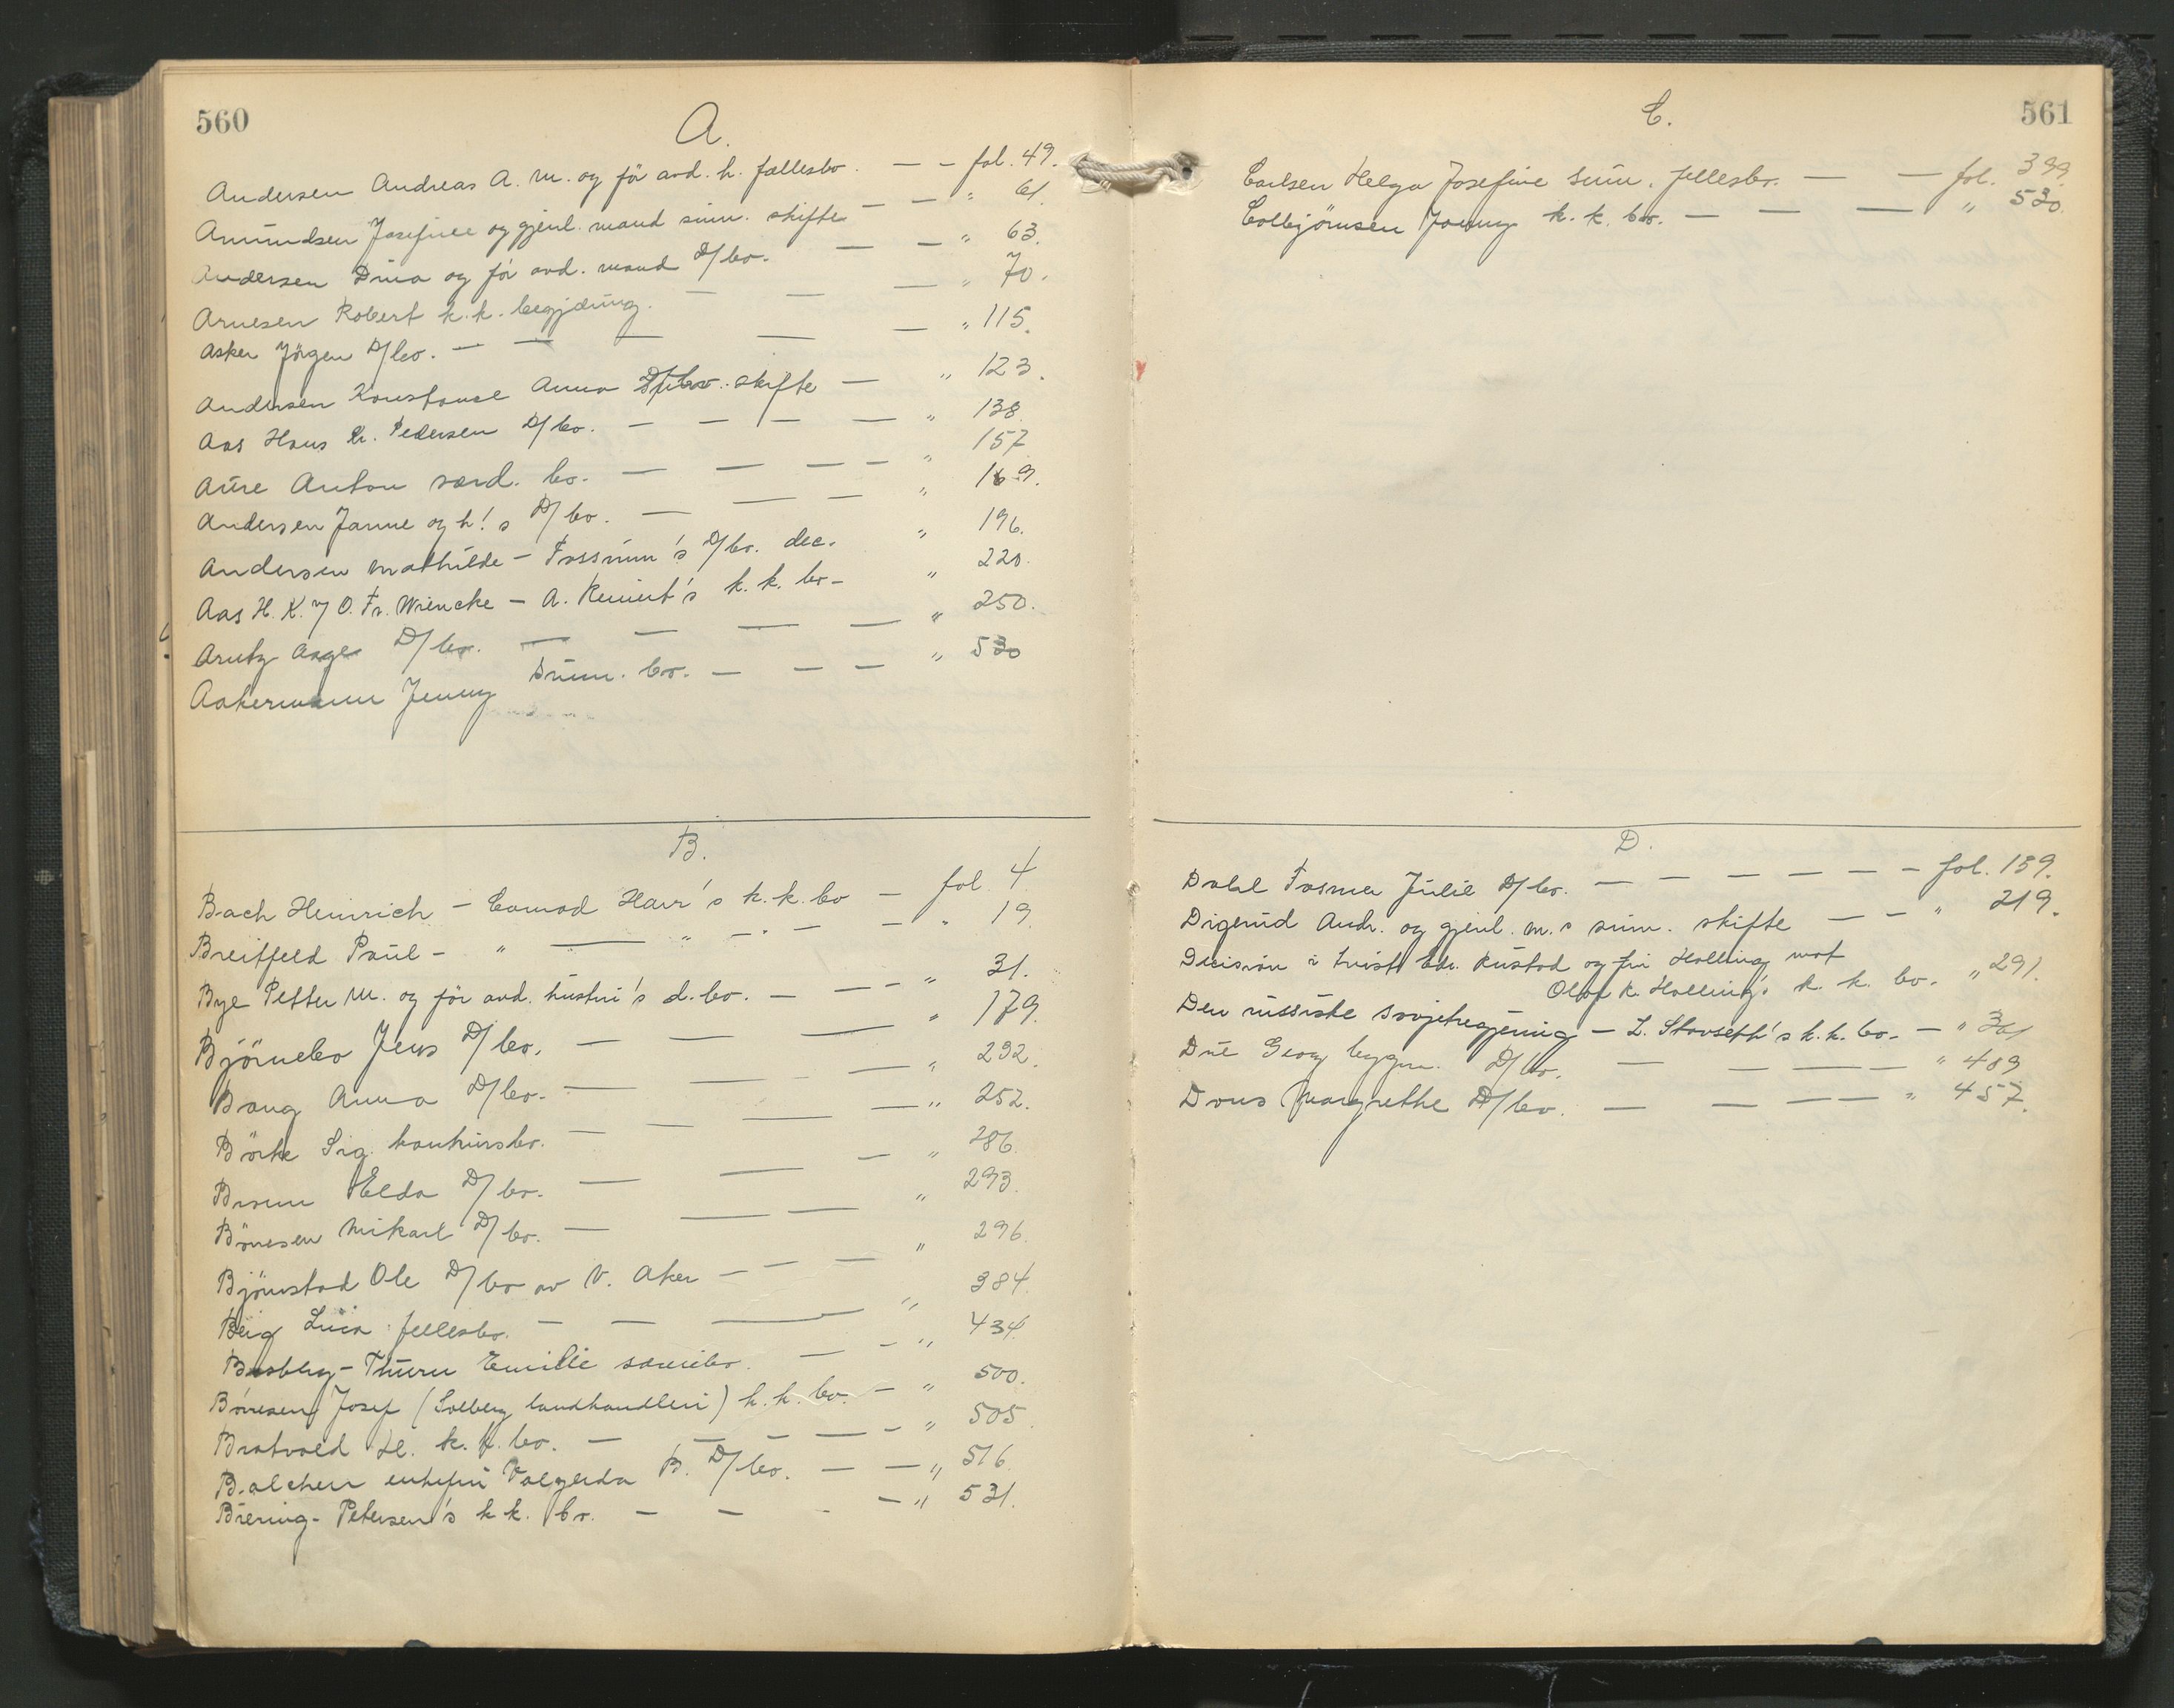 560
A.
Andersen Andreas A. M. og för avd. h. fællesbo. — — fol. 49.
Amundsen Josefine og gjenl. mand sum. skifte — — " 61.
Andersen Dina og för avd. mand D/bo. — — " 63.
Arnesen Robert k.k. begjæring. — — — " 70.
Asker Jörgen D/bo. — — — — — " 115.
Andersen Konstance Anna D/bo. skifte — " 123.
Aas Hans Kr. Pedersen D/bo. — — — — " 138.
Aure Anton særd. bo. — — — — " 157
Andersen Janne og h!s D/bo. — — — " 169.
Andersen Mathilde - Fossum's D/bo. dec. " 196.
Aas H. K. & O. Fr. Wiencke — A. Reinert's k. k. bo — " 220.
Arntz Aage D/bo. — — — — " 250.
Aakermann Jenny Sum. bo. — — — " 530
B.
Bach Heinrich — Conrad Harr's k.k. bo — fol. 4
Breitfeld Paul — " — " — " — — — " 19.
Bye Petter M. og för avd. hustru's d. bo. — — — " 31.
Björnebo Jens D/bo. — — — " 179.
Bang Anna D/bo. — — — " 232.
Börke Sig. konkursbo. — — — — " 252.
Brunn Elda D/bo. — — — " 286.
Börresen Mikael D/bo. — — — " 293.
Björnstad Ole D/bo av V. Aker — — — " 296.
Berg Lucia fellesbo. — — — " 384.
Busberg-Thurn Emilie særeiebo. — — " 434.
Börresen Josef (Solberg landhandleri) k.k. bo. — " 500.
Bratvold Hl. k. k. bo. — — — — — " 505.
Balchen enkefru Valgerda B. D/bo. — — " 516.
Biering-Petersen's k k. bo. — — - — " 531.
561
C.
Carlsen Helga Josefine sum. fellesbo. — — fol. 399.
Colbjörnsen Jonny k. k. bo. — — — " 530.
D.
Dahl Fasmer Julie D/bo. — — — — — — fol. 159.
Digerud Andr. og gjenl. m.s sum. skifte — — " 219.
Decision i tvist Edv. Rustad og fru Holling mot
Olaf K. Holling's k. k. bo. " 291.
Den russiske sovjetregjering — L. Stavseth's k.k. bo. — " 301
Due Georg bygm. D/bo. — — — — " 409
Dous Margrethe D/bo. — — — — " 457.